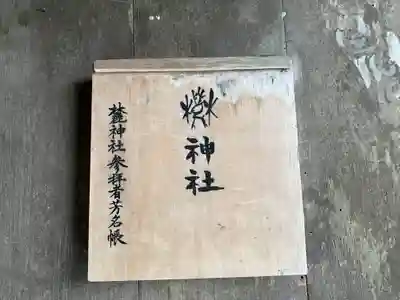 神社
麓神社参拝者芳名帳